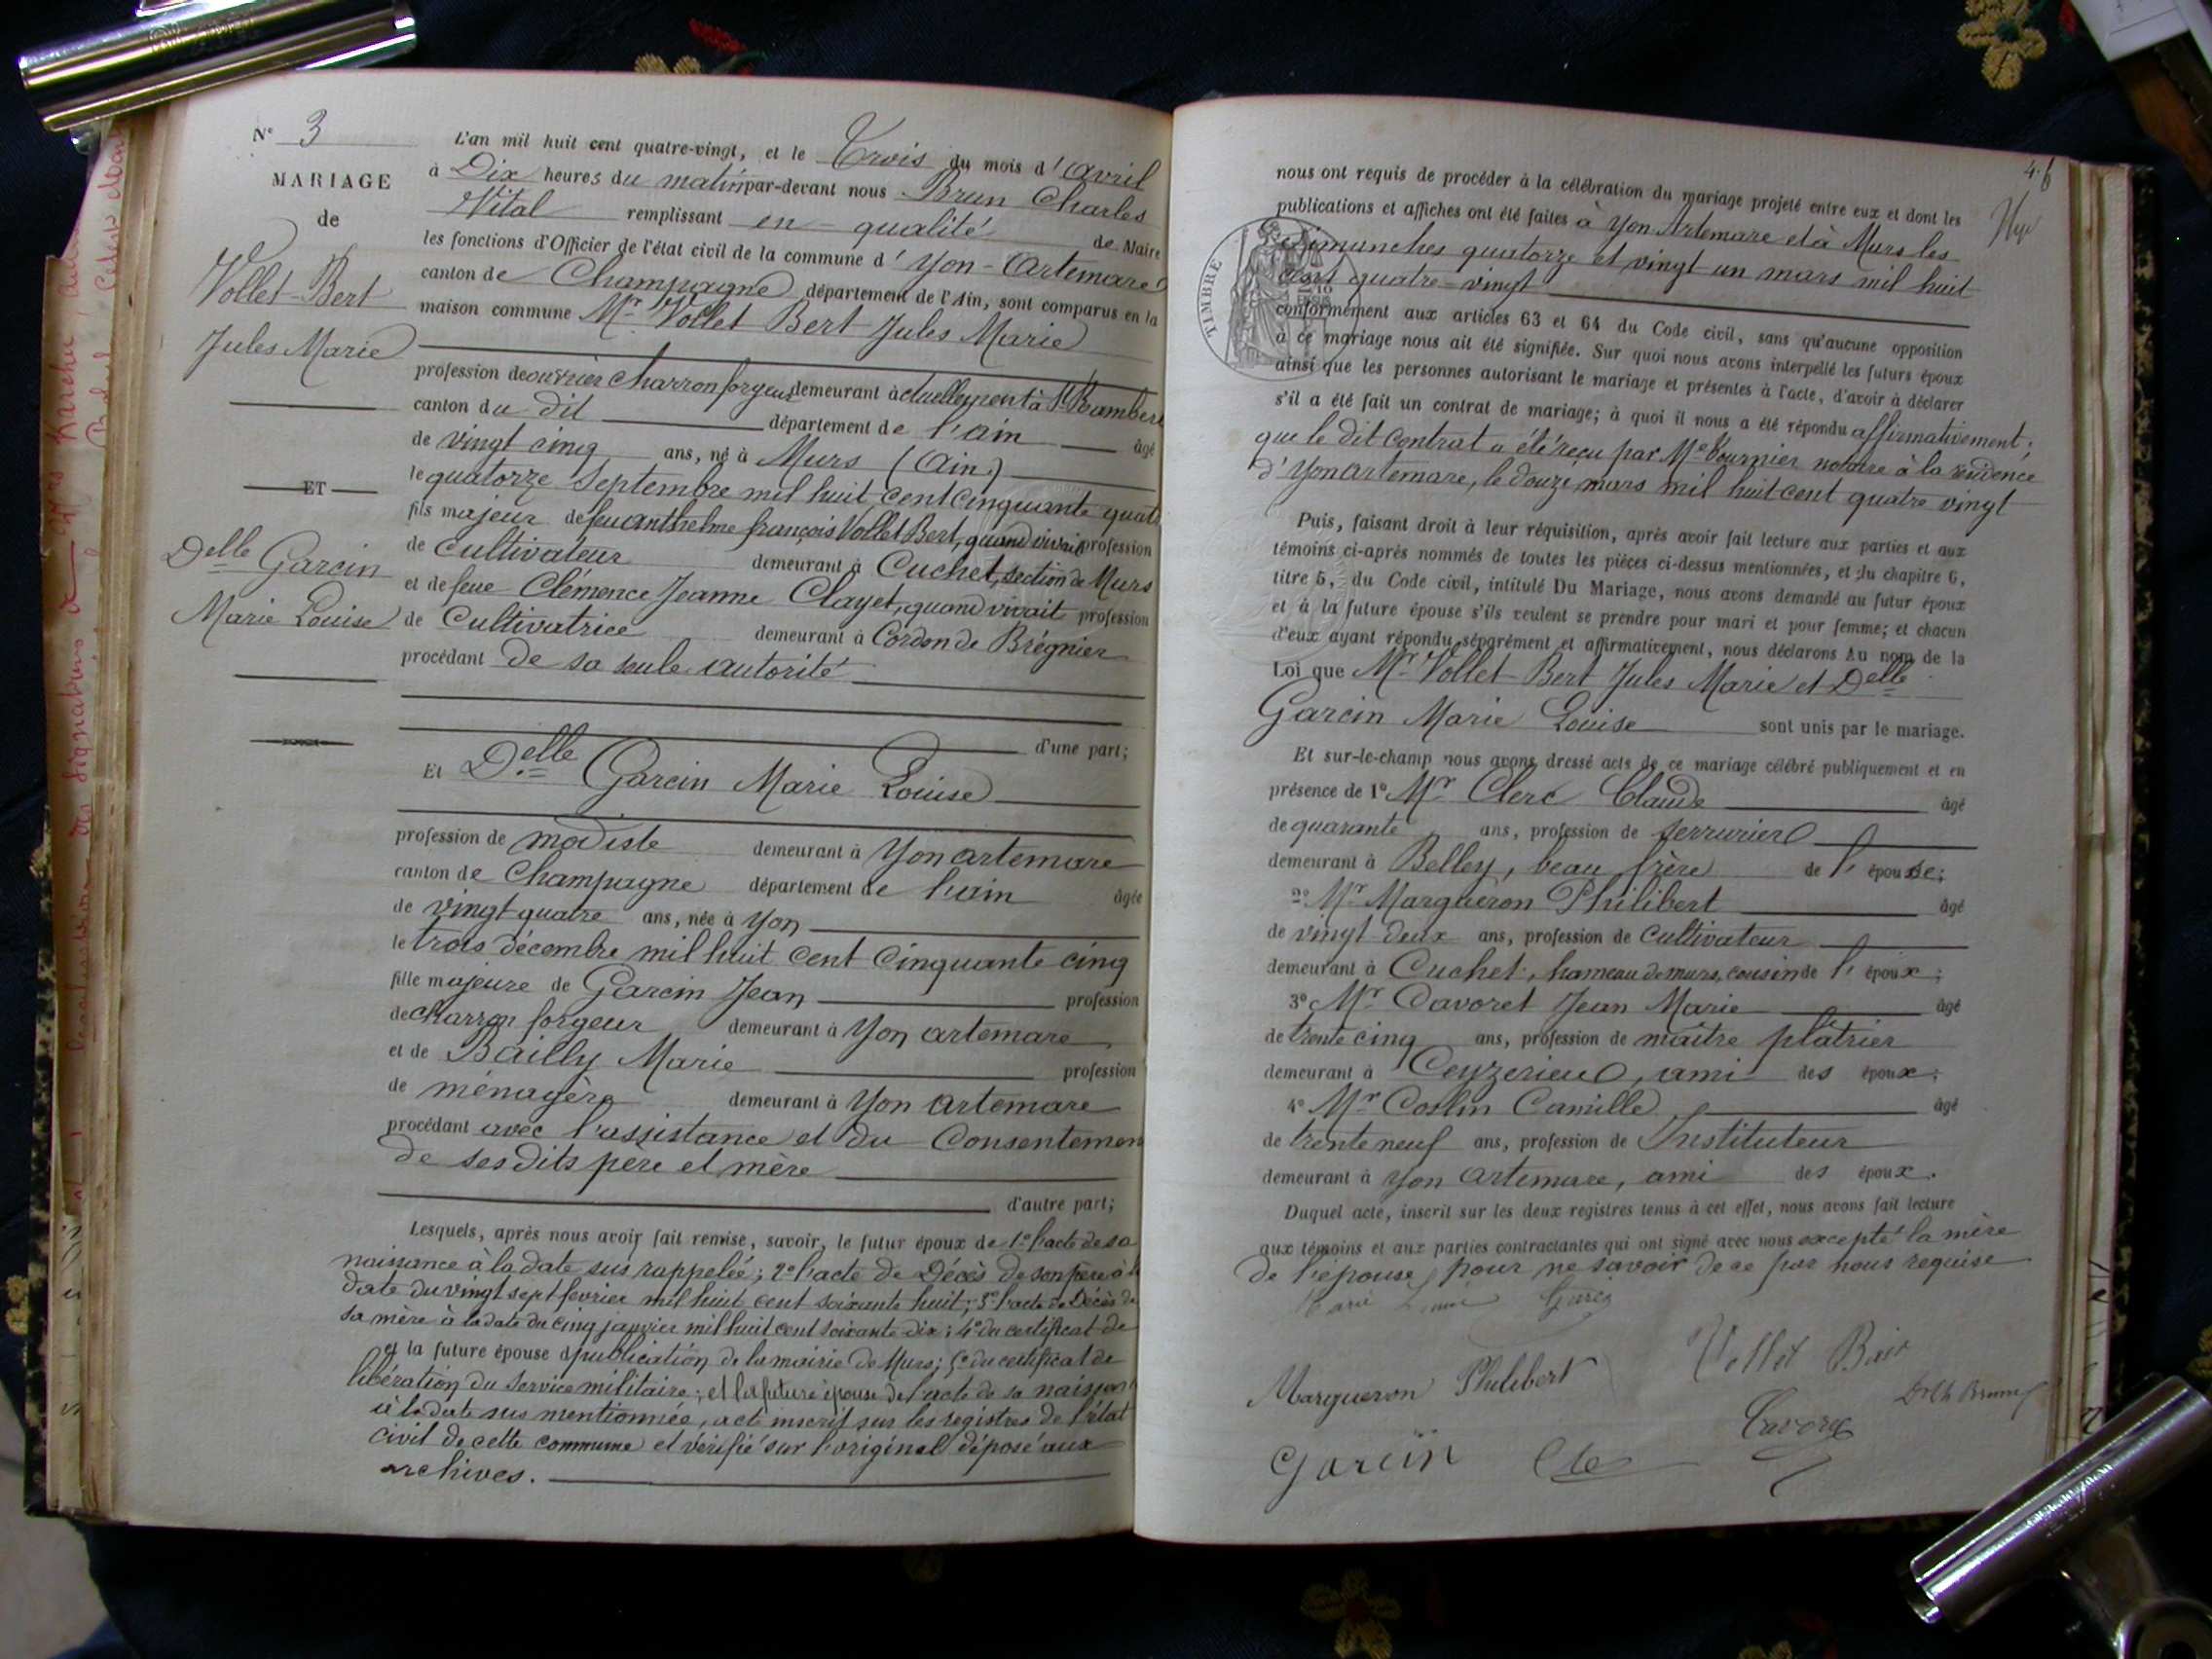 N° 3
MARIAGE
de
Vollet-Bert
Jules Marie
ET
Delle Garcin
Marie Louise
L'an mil huit cent quatre-vingt, et le Trois du mois d'Avril
à Dix heures du matin par-devant nous Brun Charles
Vital remplissant en qualité de Maire
les fonctions d'Officier de l'état civil de la commune d'Yon-Artemare
canton de Champagne département de l'Ain, sont comparus en la
maison commune Mr Vollet Bert Jules Marie
profession de ouvrier charron forgeur demeurant actuellement à St Rambert
canton du dit département de l'ain âgé
de vingt cinq ans, né à Murs (Ain)
le quatorze Septembre mil huit cent cinquante quatr
fils majeur de feu anthelme françois Vollet Bert, quand vivait profession
de cultivateur demeurant à Cuchet, section de Murs
et de feue Clémence Jeanne Clayet, quand vivait profession
de Cultivatrice demeurant à Cordon de Brégnier
procédant de sa seule autorité
d'une part;
Et Delle Garcin Marie Louise
profession de modiste demeurant à Yon artemare
canton de Champagne département de l'ain âgée
de vingt quatre ans, née à Yon
le trois décembre mil huit cent cinquante cinq
fille majeure de Garcin Jean profession
de charron forgeur demeurant à Yon artemare
et de Bailly Marie profession
de ménagère demeurant à Yon Artemare
procédant avec l'assistance et du Consentemen
de ses dits père et mère
d'autre part;
Lesquels, après nous avoir fait remise, savoir, le futur époux de 1° l'acte de sa
naissance à la date sus rappelée; 2° l'acte de Décès de son père à la
date du vingt sept fevrier mil huit cent soixante huit; 3° l'acte de Décès de
sa mère à la date du cinq janvier mil huit cent soixante dix; 4° du certificat de
et la future épouse d publication de la mairie de Murs; 5° du certificat de
libération du service militaire; et la future épouse de l'acte de sa naissan
à la date sus mentionnée, acte inscrit sur les registres de l'état
civil de cette commune et vérifié sur l'original déposé aux
archives.
nous ont requis de procéder à la célébration du mariage projeté entre eux et dont les
publications et affiches ont été faites à Yon Artemare et à Murs les
TIMBRE
dimanches quatorze et vingt un mars mil huit
cent quatre-vingt
conformément aux articles 63 et 64 du Code civil, sans qu'aucune opposition
à ce mariage nous ait été signifiée. Sur quoi nous avons interpellé les futurs époux
ainsi que les personnes autorisant le mariage et présentes à l'acte, d'avoir à déclarer
s'il a été fait un contrat de mariage; à quoi il nous a été répondu affirmativement;
que le dit contrat a été reçu par Me notaire à la résidence
d'Yon artemare, le douze mars mil huit cent quatre vingt
Puis, faisant droit à leur réquisition, après avoir fait lecture aux parties et aux
témoins ci-après nommés de toutes les pièces ci-dessus mentionnées, et du chapitre 6,
titre 5, du Code civil, intitulé Du Mariage, nous avons demandé au futur époux
et à la future épouse s'ils veulent se prendre pour mari et pour femme; et chacun
d'eux ayant répondu séparément et affirmativement, nous déclarons Au nom de la
Loi que Mr Vollet Bert Jules Marie et Delle
Garcin Marie Louise sont unis par le mariage.
Et sur-le-champ nous avons dressé acte de ce mariage célébré publiquement et en
présence de 1° Mr Clerc Claude âgé
de quarante ans, profession de serrurier
demeurant à Belley, beau frère de l'épouse;
2° Mr Margueron Philibert âgé
de vingt deux ans, profession de cultivateur
demeurant à Cuchet, hameau de murs, cousin de l'époux;
3° Mr Davoret Jean Marie âgé
de trente cinq ans, profession de maître plâtrier
demeurant à Ceyzerieu, ami des époux;
4° Mr Coslin Camille âgé
de trente neuf ans, profession de Instituteur
demeurant à Yon Artemare, ami des époux.
Duquel acte, inscrit sur les deux registres tenus à cet effet, nous avons fait lecture
aux témoins et aux parties contractantes qui ont signé avec nous excepté la mère
de l'épouse pour ne savoir de ce par nous requise
Marie Louise Garcin
Vollet Bert
Margueron Philibert
Garcin